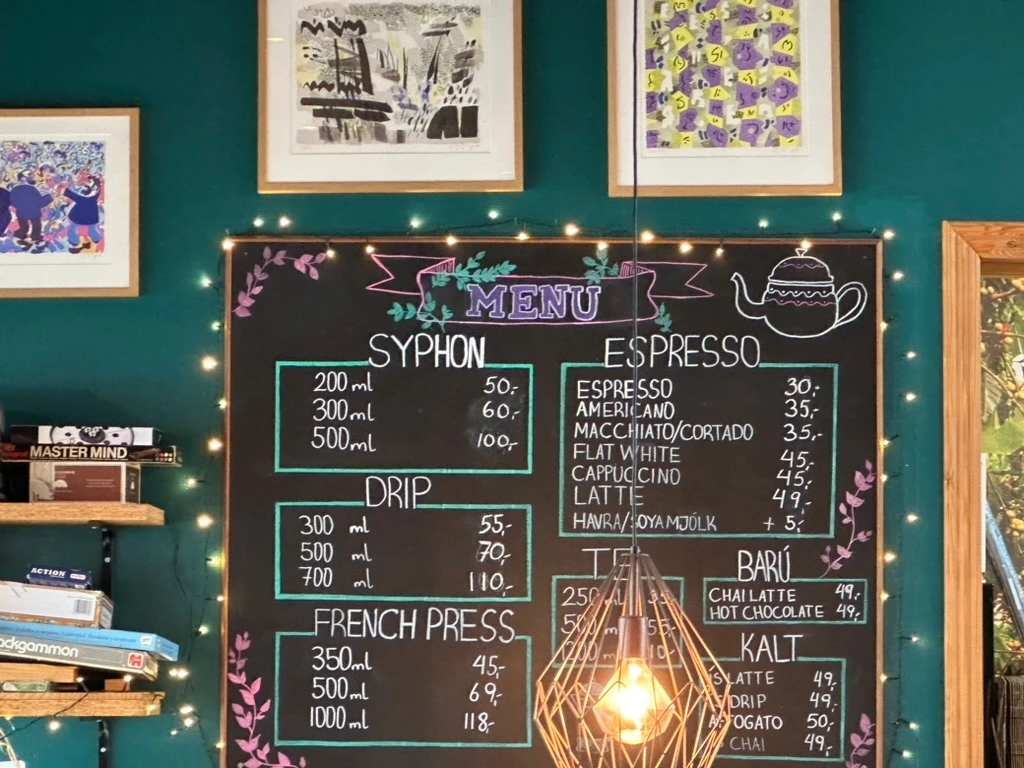 MENU
SYPHON
200 ml 50,-
300 ml 60,-
500 ml 100,-
DRIP
300 ml 55,-
500 ml 70,-
700 ml 110,-
FRENCH PRESS
350 ml 45,-
500 ml 69,-
1000 ml 118,-
ESPRESSO
ESPRESSO 30,-
AMERICANO 35,-
MACCHIATO/CORTADO 35,-
FLAT WHITE 45,-
CAPPUCCINO 45,-
LATTE 49,-
HAVRA/SOYAMJÓLK + 5,-
250 ml 35,-
500 55,-
BARÚ
CHAI LATTE 49,-
HOT CHOCOLATE 49,-
KALT
LATTE 49,-
DRIP 49,-
AFFOGATO 50,-
CHAI 49,-
MASTER MIND
ACTION
ackgammon